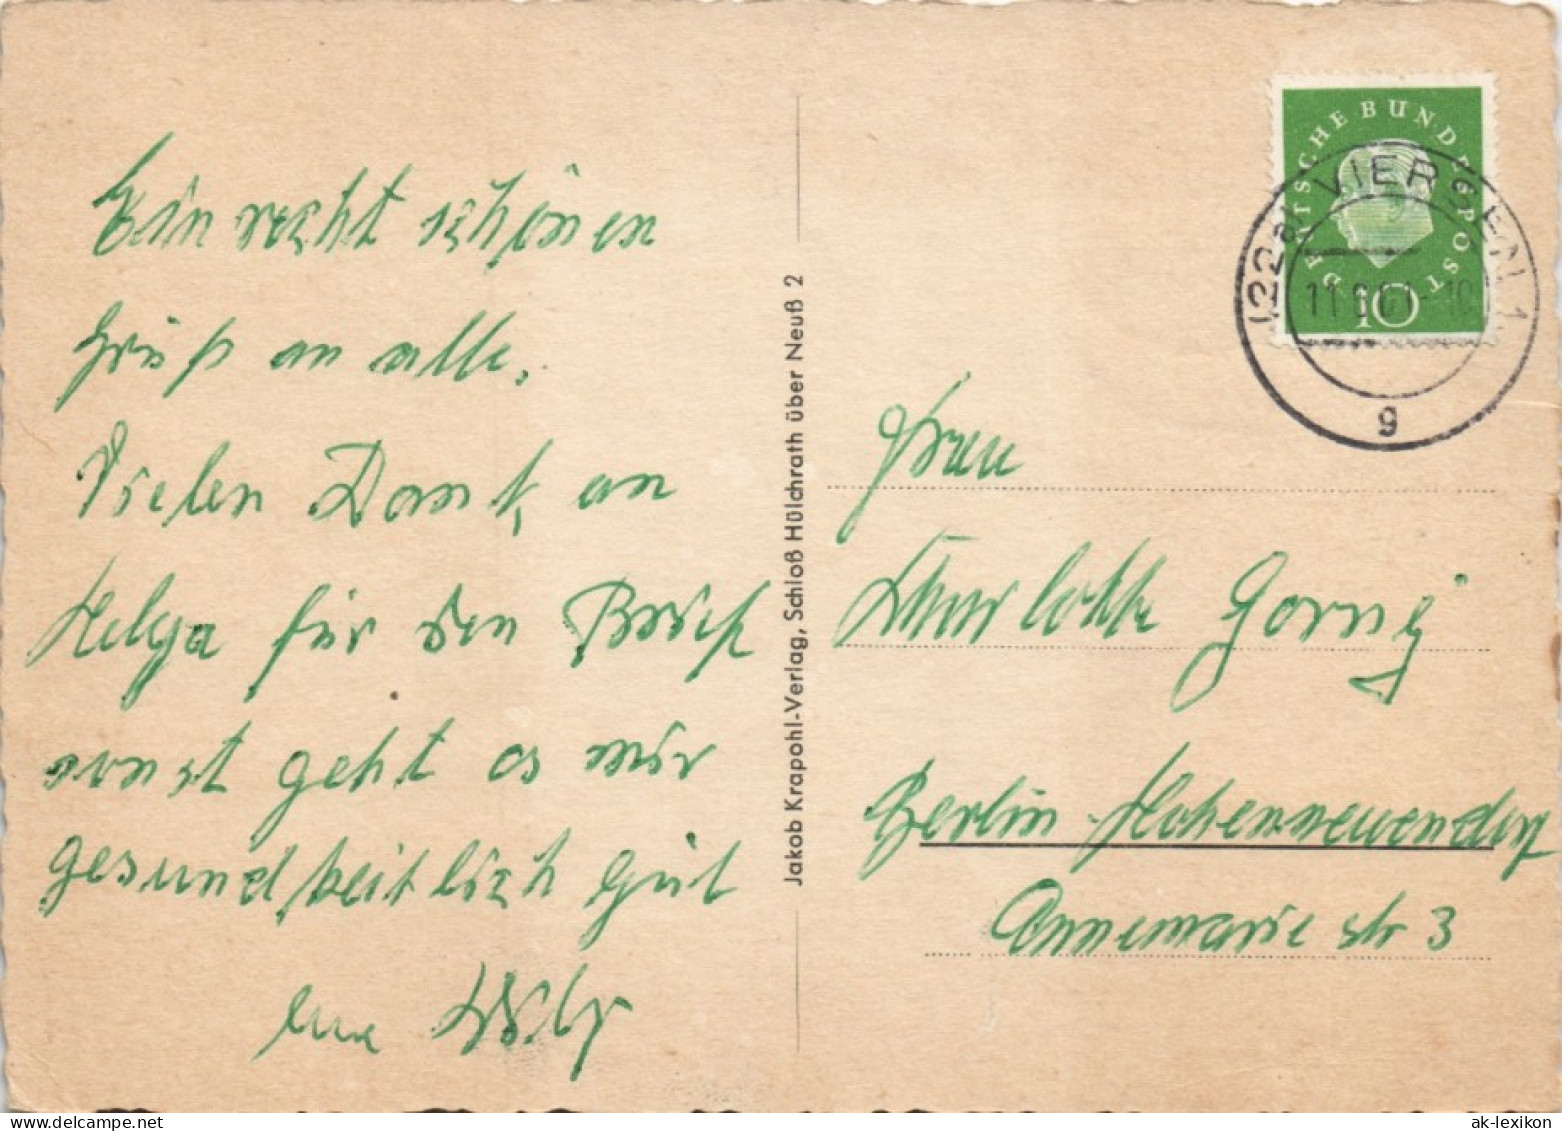 Ein recht schönen
Gruß an alle.
Vielen Dank, an
Helga für den Brief
sonst geht es mir
gesundheitlich gut
eure
Jakob Krapohl-Verlag, Schloß Hülchrath über Neuß 2
DEUTSCHE BUNDESPOST
10
(22a) VIERSEN 1
11.8.61-10
g
Frau
Charlotte Gornig
Berlin-Hohenneuendorf
Annemarie str 3
ak-lexikon